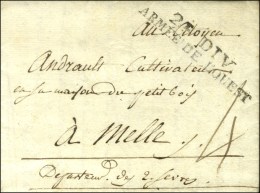 Au Citoyen
2E DIV
ARMÉE DE L'OUEST
Andrault Cultivateur
en sa maison du petit bois
à Melle
Departem.t des 2 Sevres